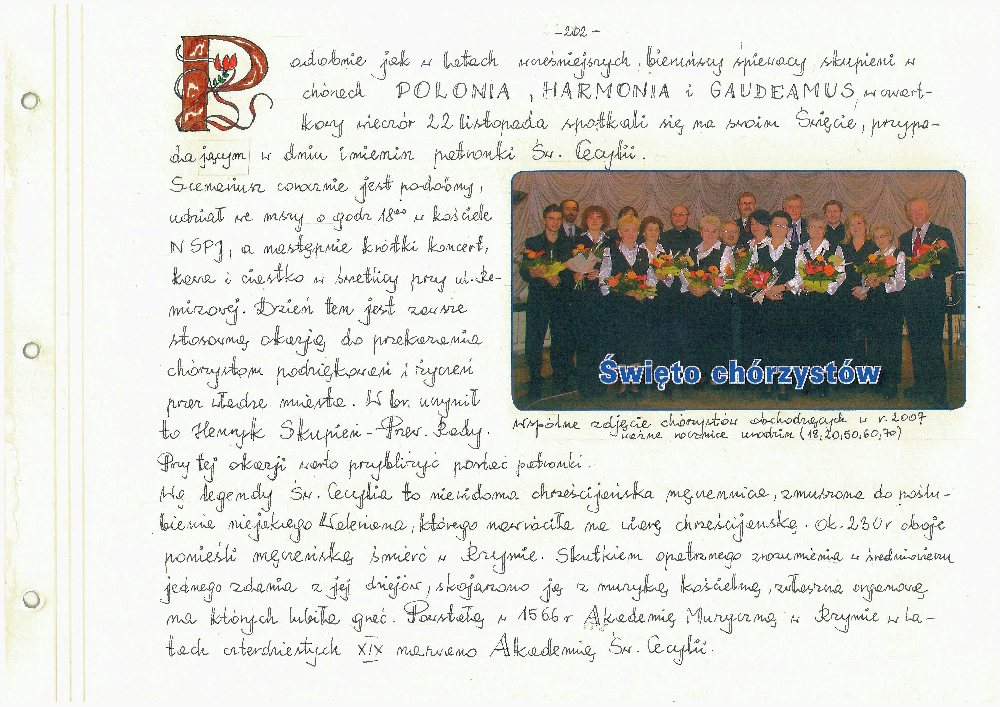 -202-
Podobnie jak w latach wcześniejszych, bieruńscy śpiewacy skupieni w
chórach POLONIA, HARMONIA i GAUDEAMUS, w czwart-
kowy wieczór 22 listopada spotkali się na swoim Święcie, przypa-
dającym w dniu imienin patronki Św. Cecylii.
Scenariusz corocznie jest podobny,
udział we mszy o godz 18⁰⁰ w kościele
NSPJ, a następnie krótki koncert,
kawa i ciastko w świetlicy przy ul. Re-
mizowej. Dzień ten jest zawsze
stosowną okazją do przekazania
chórzystom podziękowań i życzeń
przez władze miasta. W br. uczynił
to Henryk Skupień - Przew. Rady.
Święto chórzystów
Wspólne zdjęcie chórzystów obchodzących w r. 2007
ważne rocznice urodzin (18, 20, 50, 60, 70)
Przy tej okazji warto przybliżyć postać patronki.
Wg legendy Św. Cecylia to niewidoma chrześcijańska męczennica, zmuszona do poślu-
bienia niejakiego Waleriana, którego nawróciła na wiarę chrześcijańską. Ok. 230 r oboje
ponieśli męczeńską śmierć w Rzymie. Skutkiem opatrznego zrozumienia w średniowieczu
jednego zdania z jej dziejów, skojarzono ją z muzyką kościelną, zwłaszcza organową
na których lubiła grać. Powstałą w 1566 r Akademię Muzyczną w Rzymie w la-
tach czterdziestych XIX nazwano Akademią Św. Cecylii.